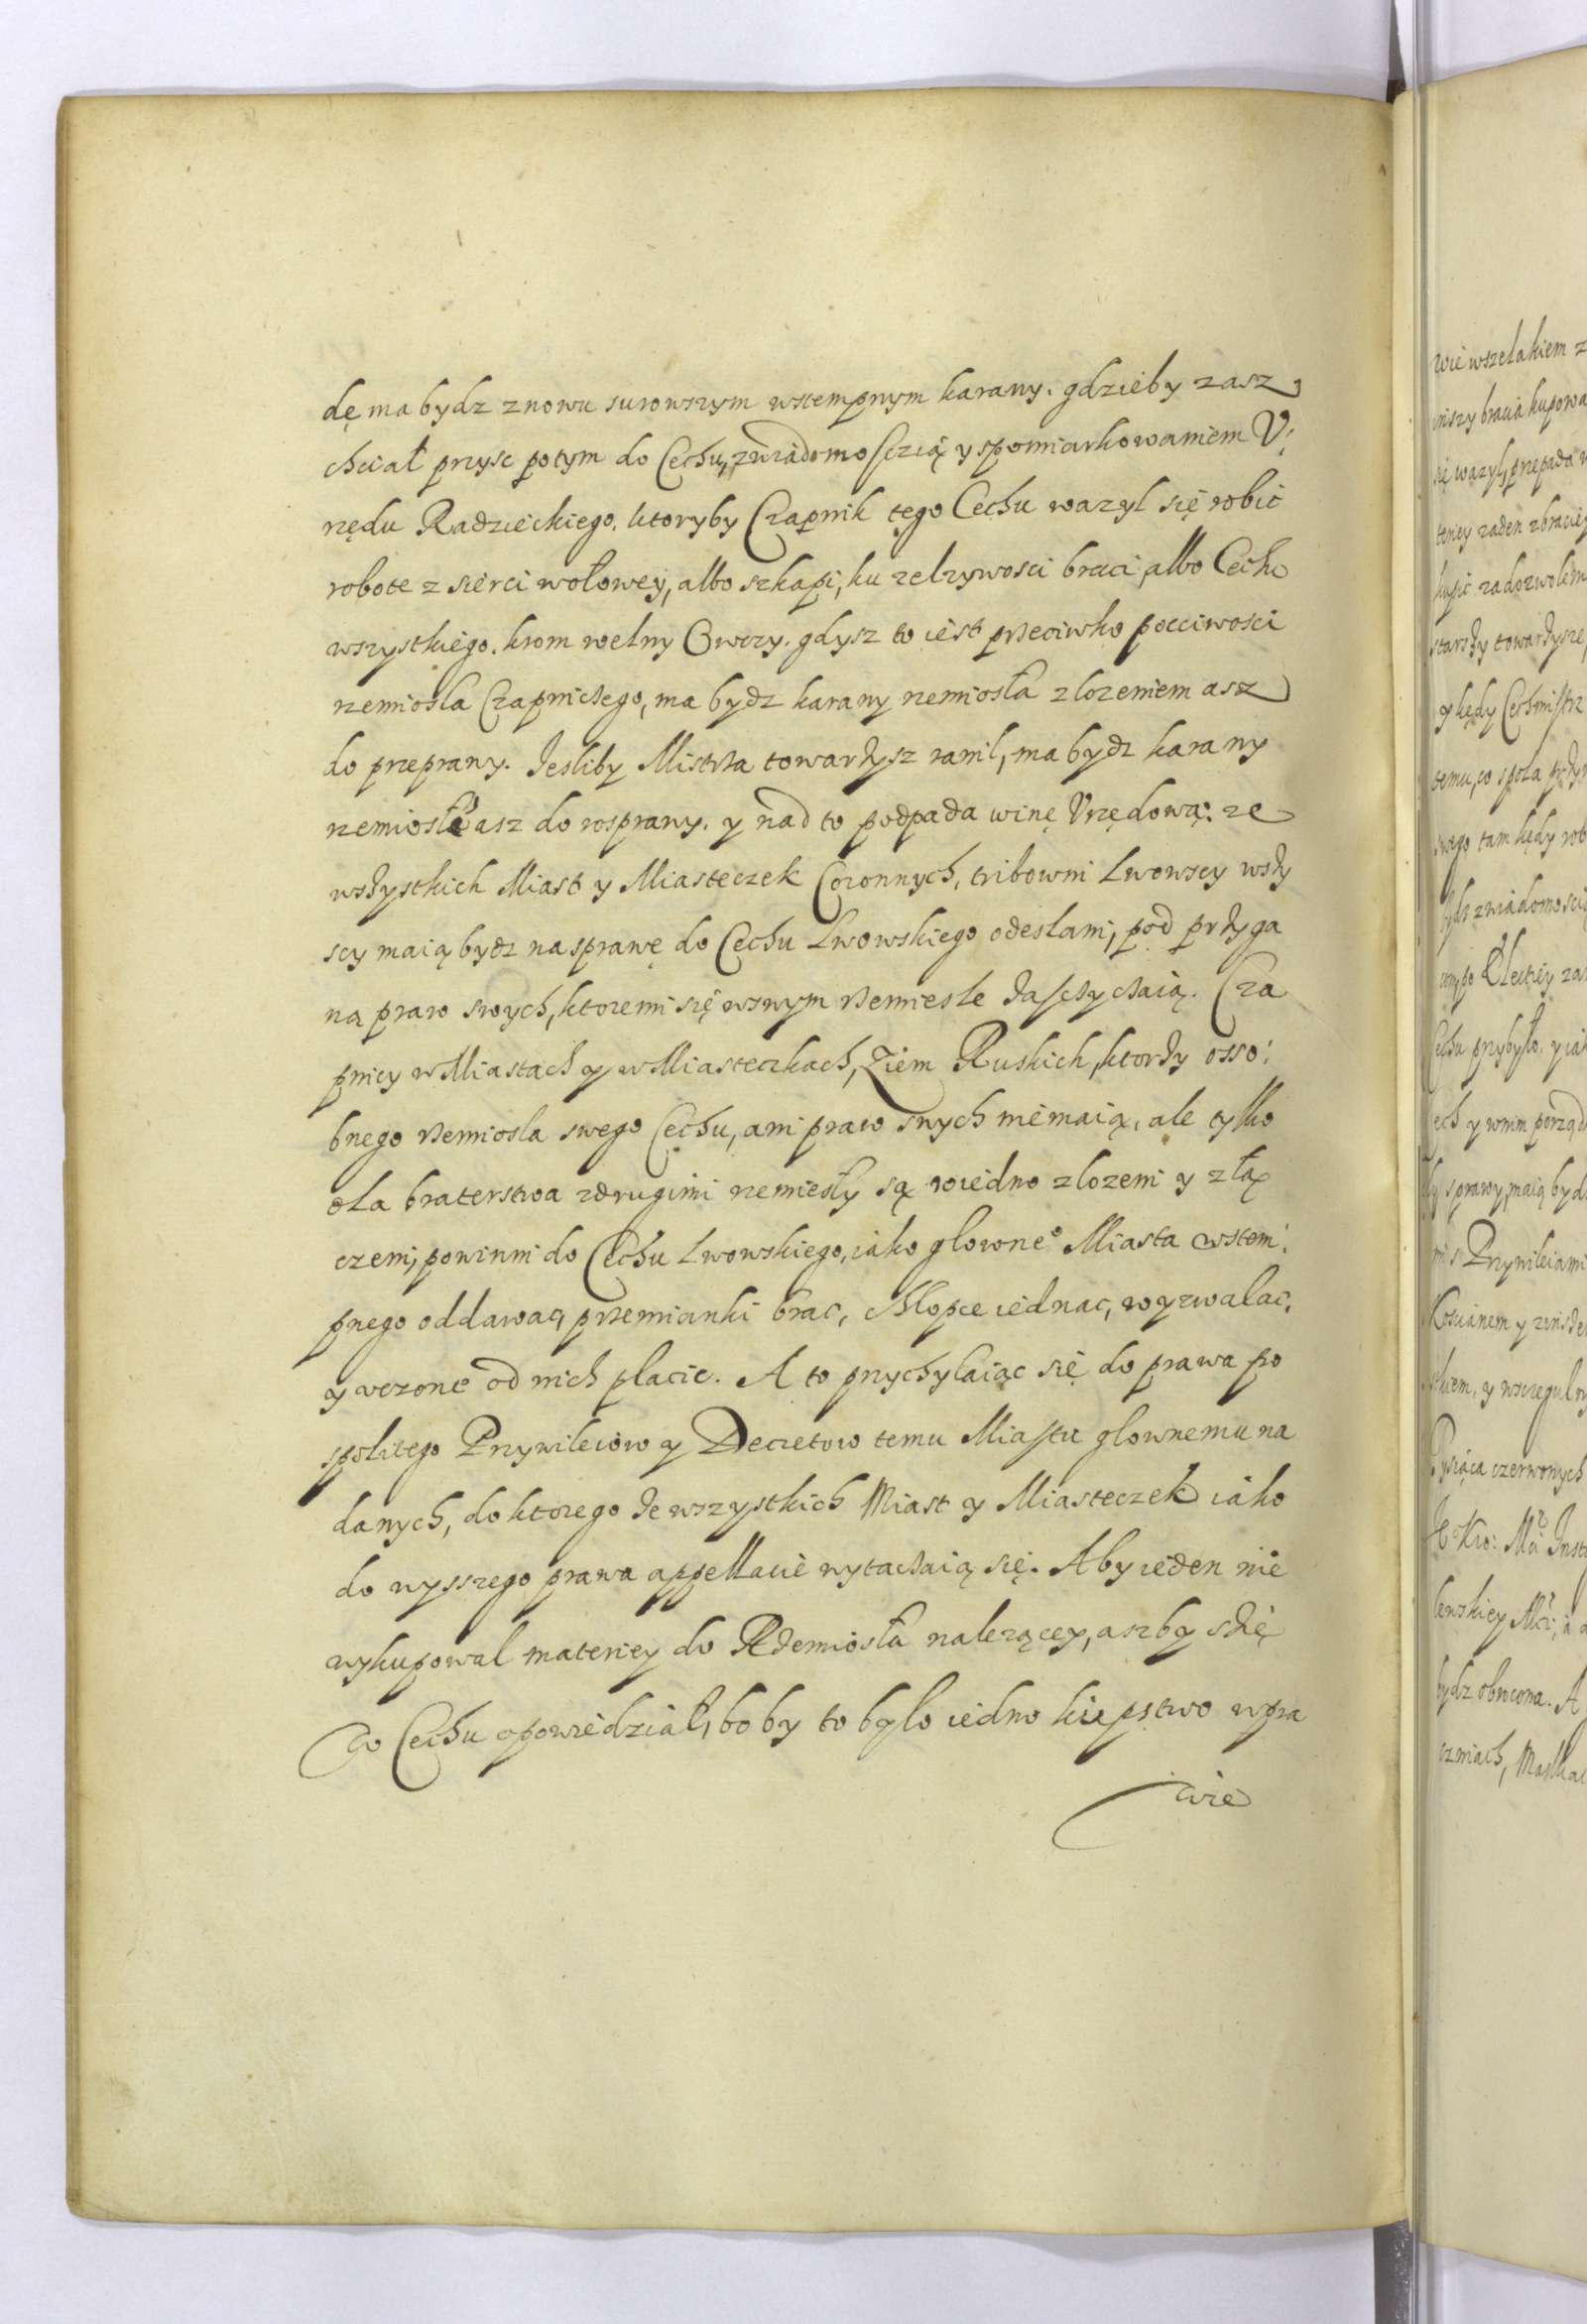 dę ma bydz znowu surowszym wstempnym karany. gdzieby zasz
chciał przysc potym do Cechu, zwiadomosczią y spomiarkowaniem V:
rzędu Radzieckiego. ktoryby Czapnik tego Cechu wazyl się robic
robote z sierci wołowey, albo szkapi, ku zelzywosci braci, albo Cechu
wszystkiego. krom wełny Owczy. gdysz to iest przeciwko pocciwosci
rzemiosła Czapniczego, ma bydz karany rzemiosła zlozeniem asz
do przeprawy. Jesliby Mistrza towarzysz ranil, ma bydz karany
rzemiosłē asz do rosprawy. y nad to podpada winę Vrzędową: ze
wszystkich Miast y Miasteczek Coronnych, tribowni Lwowscy wszy
scy maią bydz na sprawę do Cechu Lwowskiego odesłani, pod przyga
ną praw swych, ktoremi się wswym rzemiesle zasczyczaią. Cza
pnicy w Miastach y w Miasteczkach, Ziem Ruskich, ktorzy osso:
bnego rzemiosla swego Cechu, ani praw swych niemaią, ale tylko
dla braterstwa zdrugimi rzemiesły są wiedno zlozeni y złą
czeni, powinni do Cechu Lwowskiego, iako glowneº Miasta wstem:
pnego oddawac, przemianki brac, chłopce iednac, wyzwalac,
y vczone od nich placic. A to przychylaiąc się do prawa po
spolitego Przywileiow y Decretow temu Miastu glownemu na
danych, do ktorego ze wszystkich Miast y Miasteczek iako
do wyszszego prawa appellacie wytaczaią się. Aby ieden nie
wykupowal materiey do Rzemiosła nalezącey, aszby szię
do Cechu opowiedział, bo by to bylo iedno kiepstwo wpra
wie
wie wszelakiem z
inszy bracia kupowa
się wazyl, przepada
teriey zaden zbraciey
kupic za dozwolem
starszy towarzysze
y kędy Cechmistrz
temu, co społa
swego tam kędy rob
bydz zwiadomoscią
Cechu przybyło. y iak
ech y wnim porząd
sprawy, maią byd
Przywileiami
Kosciarzem y
y wszregul
Tysiąca czerwonych
bydz obrocona. A
czniach,